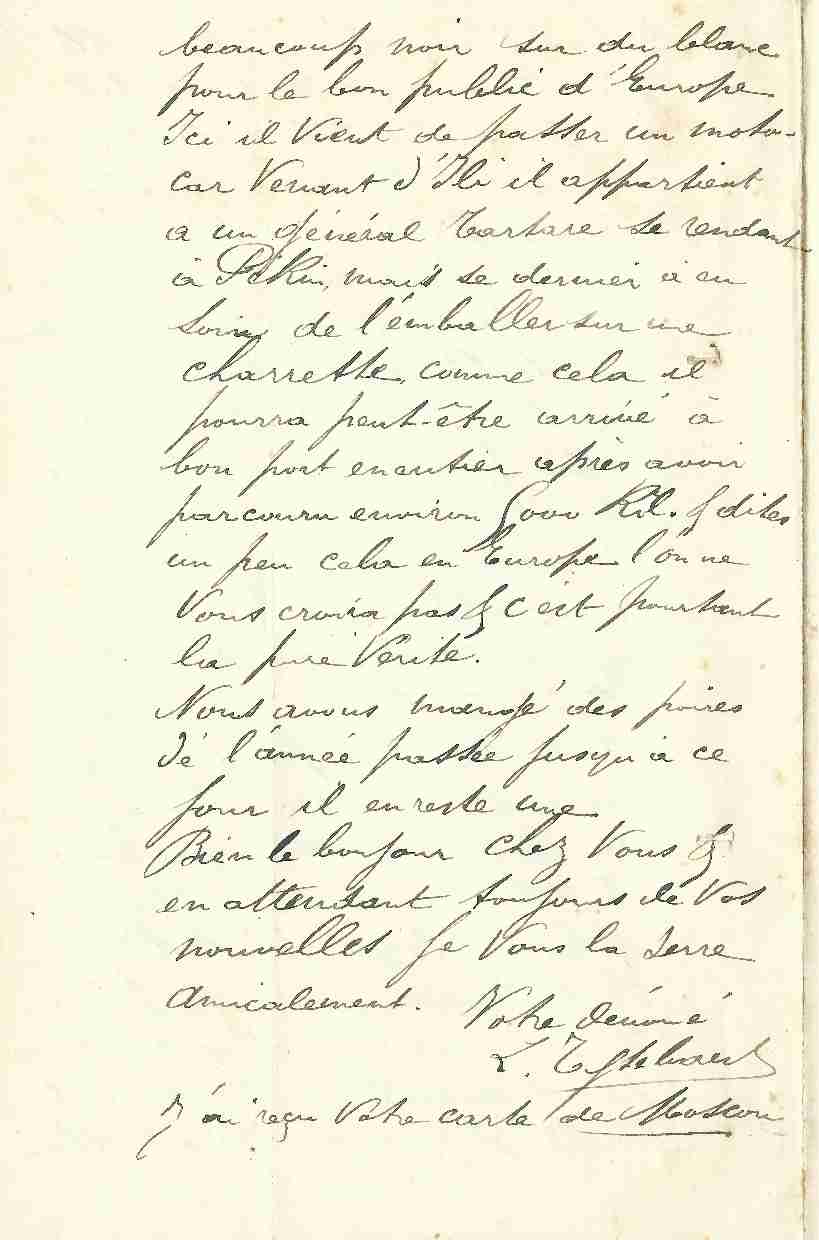 beaucoup noir sur du blanc
pour le bon public d'Europe
Ici il Vient de passer un moto-
car Venant d'Ili il appartient
a un général Tartare se rendant
à Pékin, mais se dernier à eu
soin de l'emballer sur une
charrette, comme cela il
pourra peut-être arrivé à
bon port en entier après avoir
parcouru environ 5000 Kil. & dites
un peu cela en Europe l'on ne
Vous croira pas & c'est pourtant
la pure Vérité.
Nous avons mangé des poires
dé l'année passée jusqu'à ce
jour il en reste une
Bien le bonjour chez Vous &
en attendant toujours dé Vos
nouvelles je Vous la serre
Amicalement.
Votre dévoué
L.
J'ai reçu Votre carte de Moscou